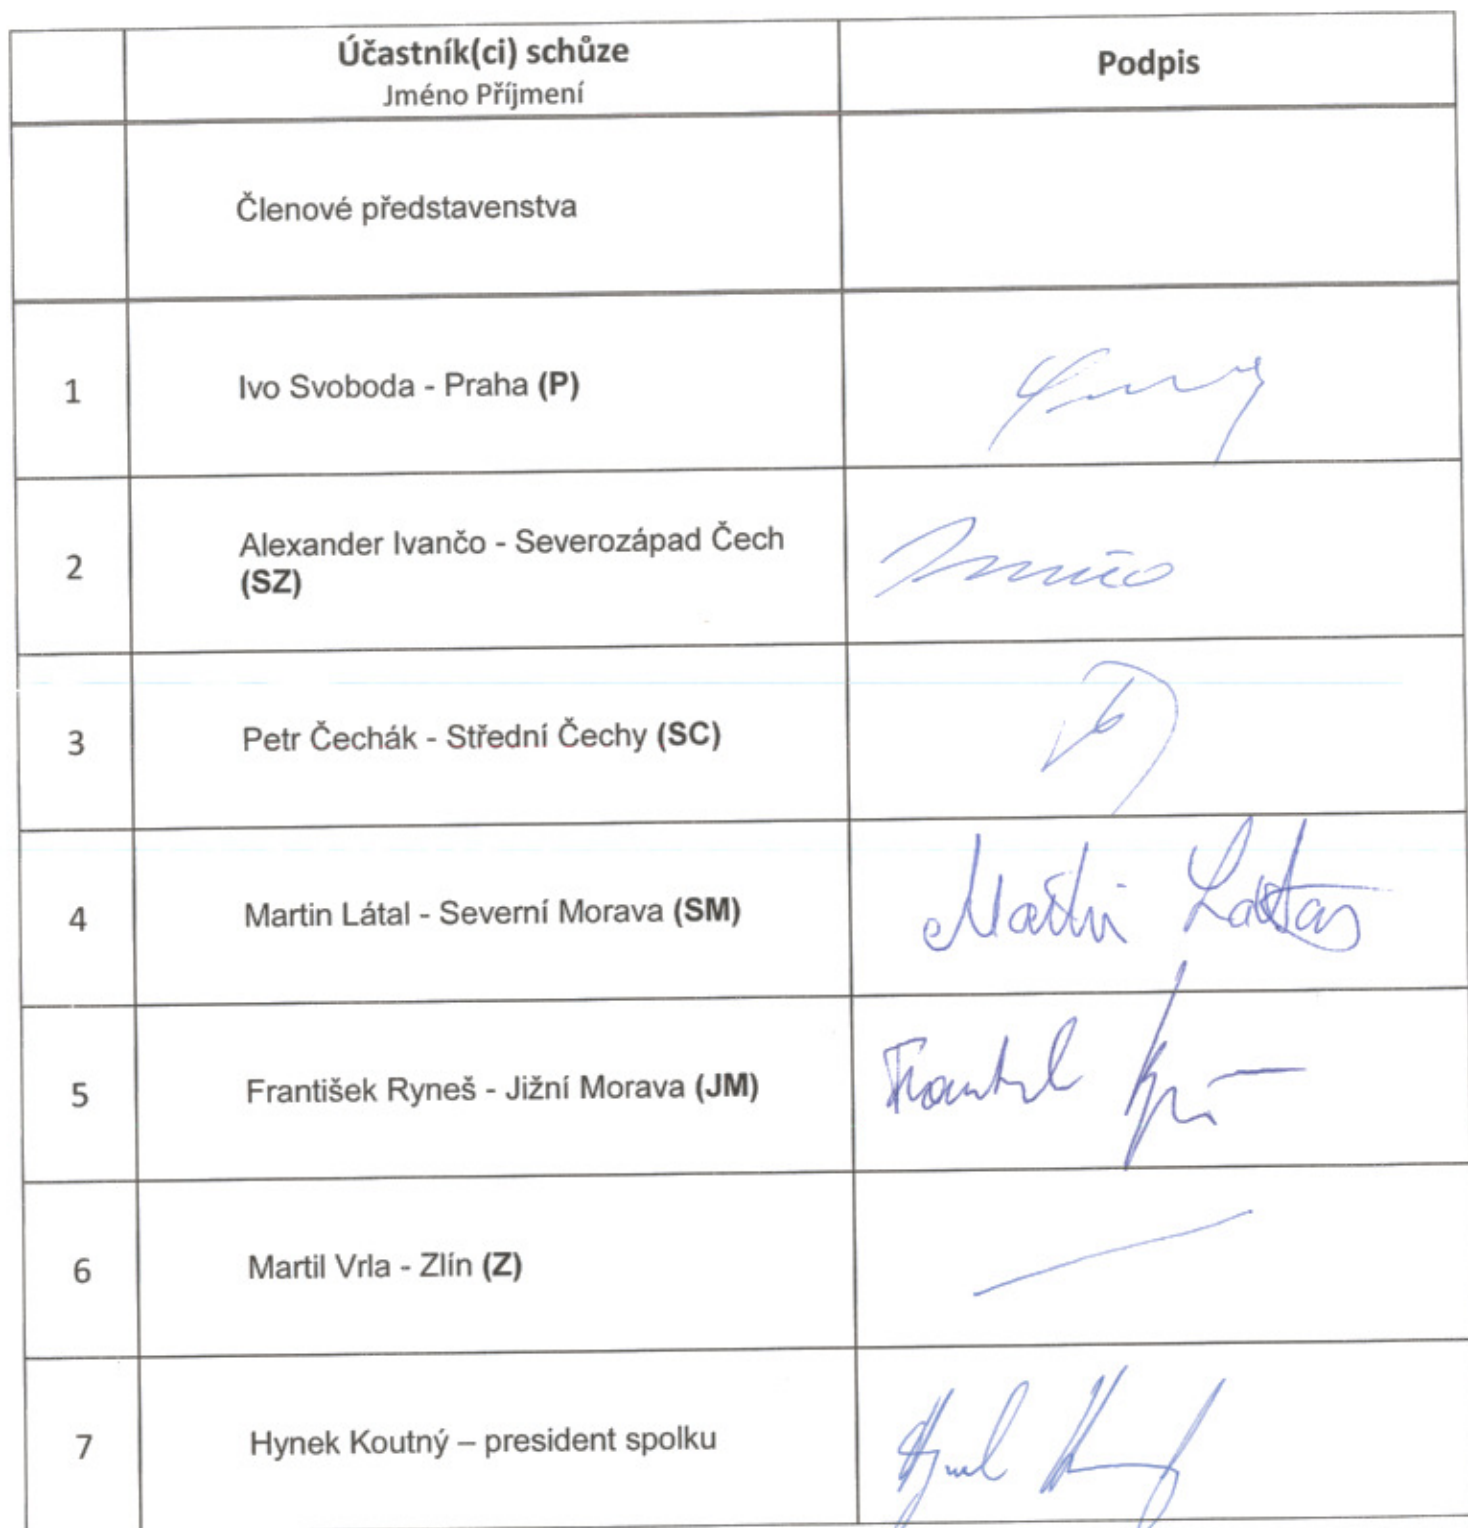 Účastník(ci) schůze
Jméno Příjmení
Podpis
Členové představenstva
1
Ivo Svoboda - Praha (P)
2
Alexander Ivančo - Severozápad Čech
(SZ)
3
Petr Čechák - Střední Čechy (SC)
4
Martin Látal - Severní Morava (SM)
Martin Látal
5
František Ryneš - Jižní Morava (JM)
6
Martil Vrla - Zlín (Z)
7
Hynek Koutný – president spolku